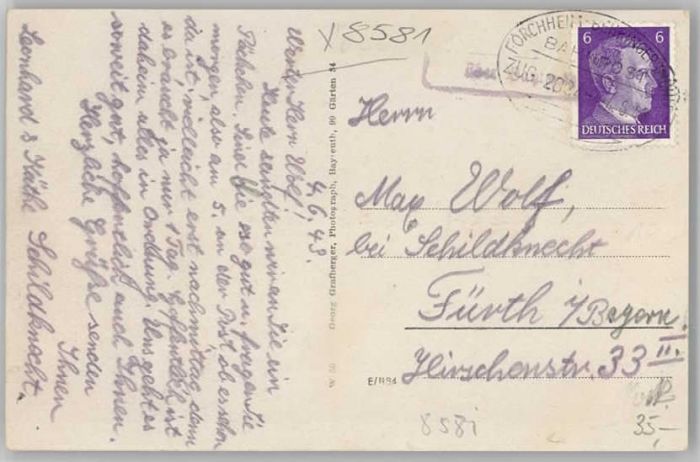 4.6.43.
Werter Herr Wolf!
Heute sandten wir an Sie ein
Päckchen. Sind Sie so gut u. fragen Sie
morgen, also am 5. an der Post, ob es schon
da ist, vielleicht erst nachmittag, denn
es braucht ja nur 1 Tag. Hoffentlich ist
daheim alles in Ordnung. Uns geht es
soweit gut, hoffentlich auch Ihnen.
Herzliche Grüße senden
Ihnen
Leonhard & Käthe Schildknecht.
Georg Grafberger, Photograph, Bayreuth, 99 Gärten 34
W 50
X8581
FORCHHEIM
BAHNPOST
ZUG
6 6
DEUTSCHES REICH
Herrn
Max Wolf,
bei Schildknecht
Fürth i/Bayern.
Hirschenstr. 33 II.
E/1194
8581
35,-